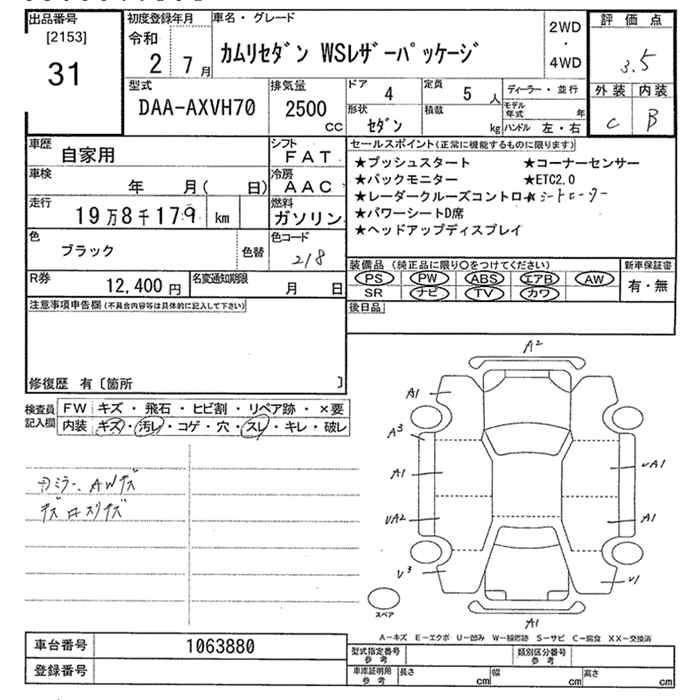 出品番号
[2153]
31
初度登録年月
令和
2 7月
車名・グレード
カムリセダン WSレザーパッケージ
2WD
・
4WD
評価点
3.5
外装 内装
C B
型式
DAA-AXVH70
排気量
2500
cc
ドア
4
定員
5 人
形状
セダン
積載
kg
ディーラー・並行
モデル年式 年
ハンドル 左・右
車歴
自家用
シフト
FAT
車検
年 月( 日)
冷房
AAC
走行
19万8千179 km
燃料
ガソリン
色
ブラック
色替
色コード
218
R券
12,400 円
名変通知期限
月 日
セールスポイント(正常に機能するものに限ります)
★プッシュスタート ★コーナーセンサー
★バックモニター ★ETC2.0
★レーダークルーズコントロ★シートヒーター
★パワーシートD席
★ヘッドアップディスプレイ
装備品(純正品に限り○をつけてください)
PS PW ABS エアB AW
SR ナビ TV カワ
新車保証書
有・無
後日品
注意事項申告欄(不具合内容等は具体的に記入して下さい)
修復歴 有〔箇所 〕
検査員記入欄
FW キズ・飛石・ヒビ割・リペア跡・×要
内装 キズ・汚レ・コゲ・穴・スレ・キレ・破レ
ミラー、AWキズ
A2
A1
A3
A1
UA2
U3
UA1
A1
U1
A1
スペア
A－キズ E－エクボ U－凹み W－補修跡 S－サビ C－腐食 XX－交換済
車台番号 1063880
登録番号
型式指定番号 参考
類別区分番号 参考
車庫証明用 参考
長さ cm 幅 cm 高さ cm